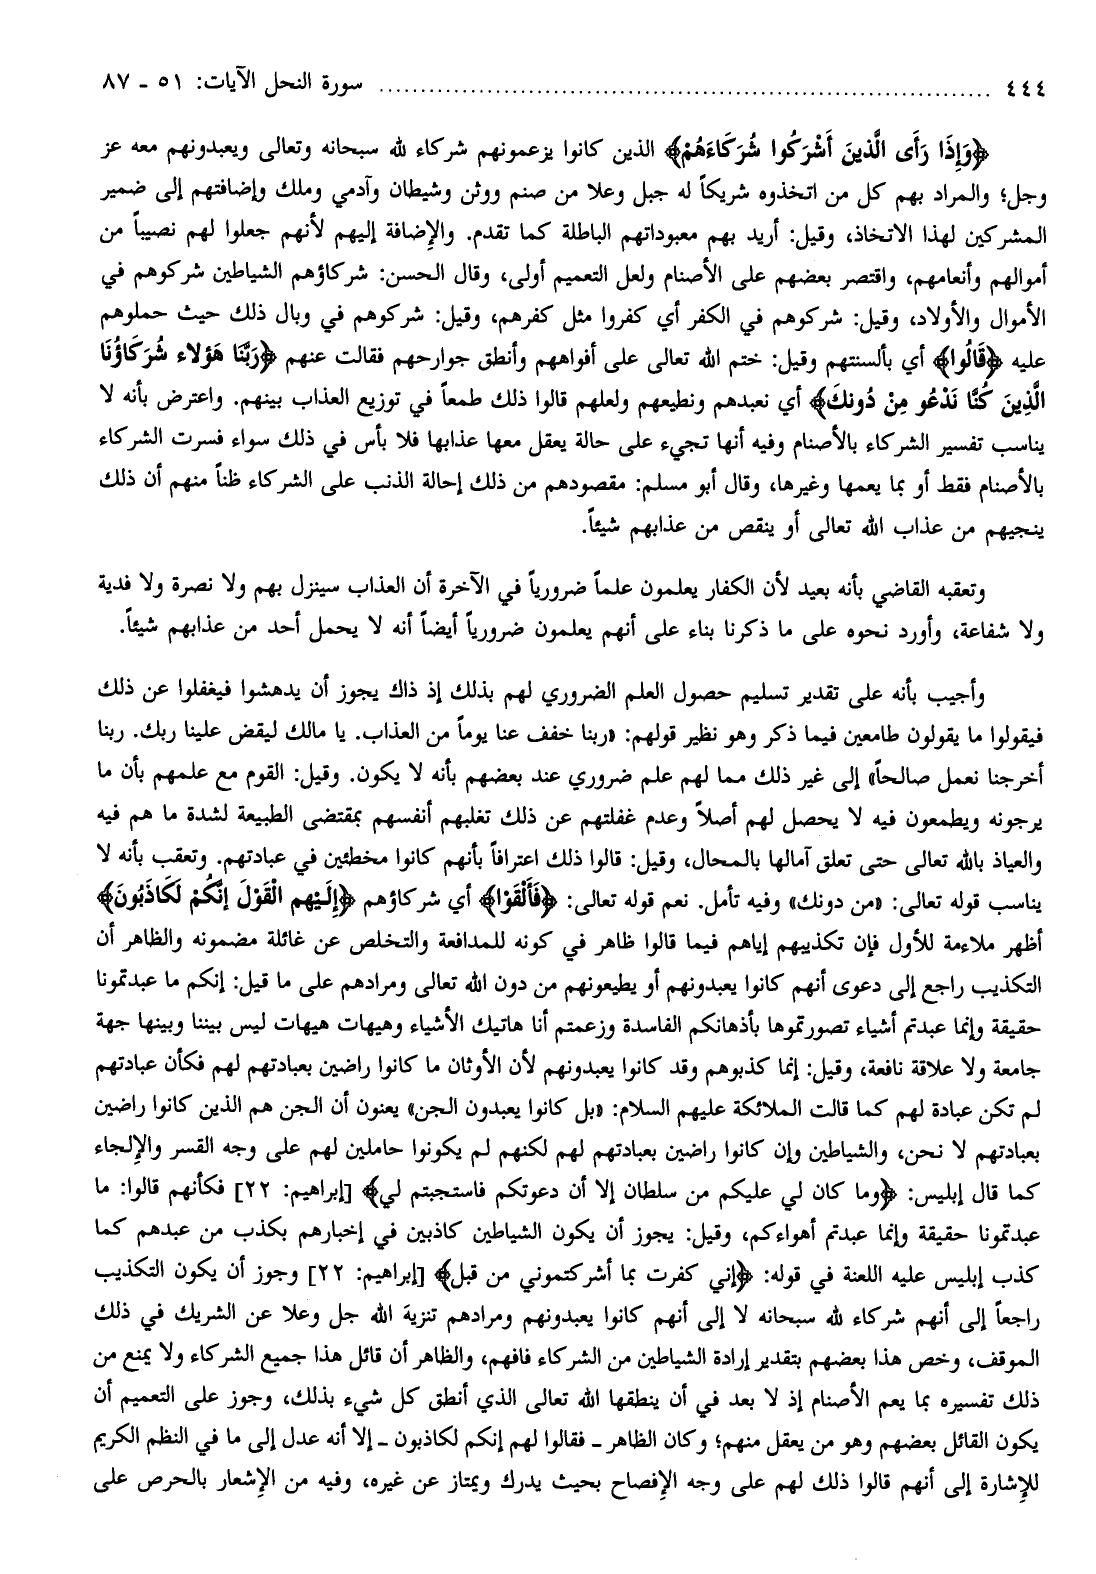 ٤٤٤ ........................................................................ سورة النحل الآيات: ٥١ ـ ٨٧
﴿وَإِذَا رَأَى الَّذينَ أَشْرَكُوا شُرَكَاءَهُمْ﴾ الذين كانوا يزعمونهم شركاء لله سبحانه وتعالى ويعبدونهم معه عز
وجل؛ والمراد بهم كل من اتخذوه شريكاً له جبل وعلا من صنم ووثن وشيطان وآدمي وملك وإضافتهم إلى ضمير
المشركين لهذا الاتخاذ، وقيل: أريد بهم معبوداتهم الباطلة كما تقدم. والإضافة إليهم لأنهم جعلوا لهم نصيباً من
أموالهم وأنعامهم، واقتصر بعضهم على الأصنام ولعل التعميم أولى، وقال الحسن: شركاؤهم الشياطين شركوهم في
الأموال والأولاد، وقيل: شركوهم في الكفر أي كفروا مثل كفرهم، وقيل: شركوهم في وبال ذلك حيث حملوهم
عليه ﴿قَالُوا﴾ أي بألسنتهم وقيل: ختم الله تعالى على أفواههم وأنطق جوارحهم فقالت عنهم ﴿رَبَّنَا هَؤلاء شُرَكَاؤُنَا
الَّذِينَ كُنَّا نَدْعُو مِنْ دُونكَ﴾ أي نعبدهم ونطيعهم ولعلهم قالوا ذلك طمعاً في توزيع العذاب بينهم. واعترض بأنه لا
يناسب تفسير الشركاء بالأصنام وفيه أنها تجيء على حالة يعقل معها عذابها فلا بأس في ذلك سواء فسرت الشركاء
بالأصنام فقط أو بما يعمها وغيرها، وقال أبو مسلم: مقصودهم من ذلك إحالة الذنب على الشركاء ظناً منهم أن ذلك
ينجيهم من عذاب الله تعالى أو ينقص من عذابهم شيئاً.
وتعقبه القاضي بأنه بعيد لأن الكفار يعلمون علماً ضرورياً في الآخرة أن العذاب سينزل بهم ولا نصرة ولا فدية
ولا شفاعة، وأورد نحوه على ما ذكرنا بناء على أنهم يعلمون ضرورياً أيضاً أنه لا يحمل أحد من عذابهم شيئاً.
وأجيب بأنه على تقدير تسليم حصول العلم الضروري لهم بذلك إذ ذاك يجوز أن يدهشوا فيغفلوا عن ذلك
فيقولوا ما يقولون طامعين فيما ذكر وهو نظير قولهم: «ربنا خفف عنا يوماً من العذاب. يا مالك ليقض علينا ربك. ربنا
أخرجنا نعمل صالحاً» إلى غير ذلك مما لهم علم ضروري عند بعضهم بأنه لا يكون. وقيل: القوم مع علمهم بأن ما
يرجونه ويطمعون فيه لا يحصل لهم أصلاً وعدم غفلتهم عن ذلك تغلبهم أنفسهم بمقتضى الطبيعة لشدة ما هم فيه
والعياذ بالله تعالى حتى تعلق آمالها بالمحال، وقيل: قالوا ذلك اعترافاً بأنهم كانوا مخطئين في عبادتهم. وتعقب بأنه لا
يناسب قوله تعالى: «من دونك» وفيه تأمل. نعم قوله تعالى: ﴿فَأَلْقَوْا﴾ أي شركاؤهم ﴿إِلَيْهم الْقَوْلَ إنَّكُمْ لَكَاذبُونَ﴾
أظهر ملاءمة للأول فإن تكذيبهم إياهم فيما قالوا ظاهر في كونه للمدافعة والتخلص عن غائلة مضمونه والظاهر أن
التكذيب راجع إلى دعوى أنهم كانوا يعبدونهم أو يطيعونهم من دون الله تعالى ومرادهم على ما قيل: إنكم ما عبدتمونا
حقيقة وإنما عبدتم أشياء تصورتموها بأذهانكم الفاسدة وزعمتم أنا هاتيك الأشياء وهيهات هيهات ليس بيننا وبينها جهة
جامعة ولا علاقة نافعة، وقيل: إنما كذبوهم وقد كانوا يعبدونهم لأن الأوثان ما كانوا راضين بعبادتهم لهم فكأن عبادتهم
لم تكن عبادة لهم كما قالت الملائكة عليهم السلام: «بل كانوا يعبدون الجن» يعنون أن الجن هم الذين كانوا راضين
بعبادتهم لا نحن، والشياطين وإن كانوا راضين بعبادتهم لهم لكنهم لم يكونوا حاملين لهم على وجه القسر والإلجاء
كما قال إبليس: ﴿وما كان لي عليكم من سلطان إلا أن دعوتكم فاستجبتم لي﴾ [إبراهيم: ٢٢] فكأنهم قالوا: ما
عبدتمونا حقيقة وإنما عبدتم أهواءكم، وقيل: يجوز أن يكون الشياطين كاذبين في إخبارهم بكذب من عبدهم كما
كذب إبليس عليه اللعنة في قوله: ﴿إني كفرت بما أشركتموني من قبل﴾ [إبراهيم: ٢٢] وجوز أن يكون التكذيب
راجعاً إلى أنهم شركاء لله سبحانه لا إلى أنهم كانوا يعبدونهم ومرادهم تنزية الله جل وعلا عن الشريك في ذلك
الموقف، وخص هذا بعضهم بتقدير إرادة الشياطين من الشركاء فافهم، والظاهر أن قائل هذا جميع الشركاء ولا يمنع من
ذلك تفسيره بما يعم الأصنام إذ لا بعد في أن ينطقها الله تعالى الذي أنطق كل شيء بذلك، وجوز على التعميم أن
يكون القائل بعضهم وهو من يعقل منهم؛ وكان الظاهر ـ فقالوا لهم إنكم لكاذبون ـ إلا أنه عدل إلى ما في النظم الكريم
للإشارة إلى أنهم قالوا ذلك لهم على وجه الإفصاح بحيث يدرك ويمتاز عن غيره، وفيه من الإشعار بالحرص على